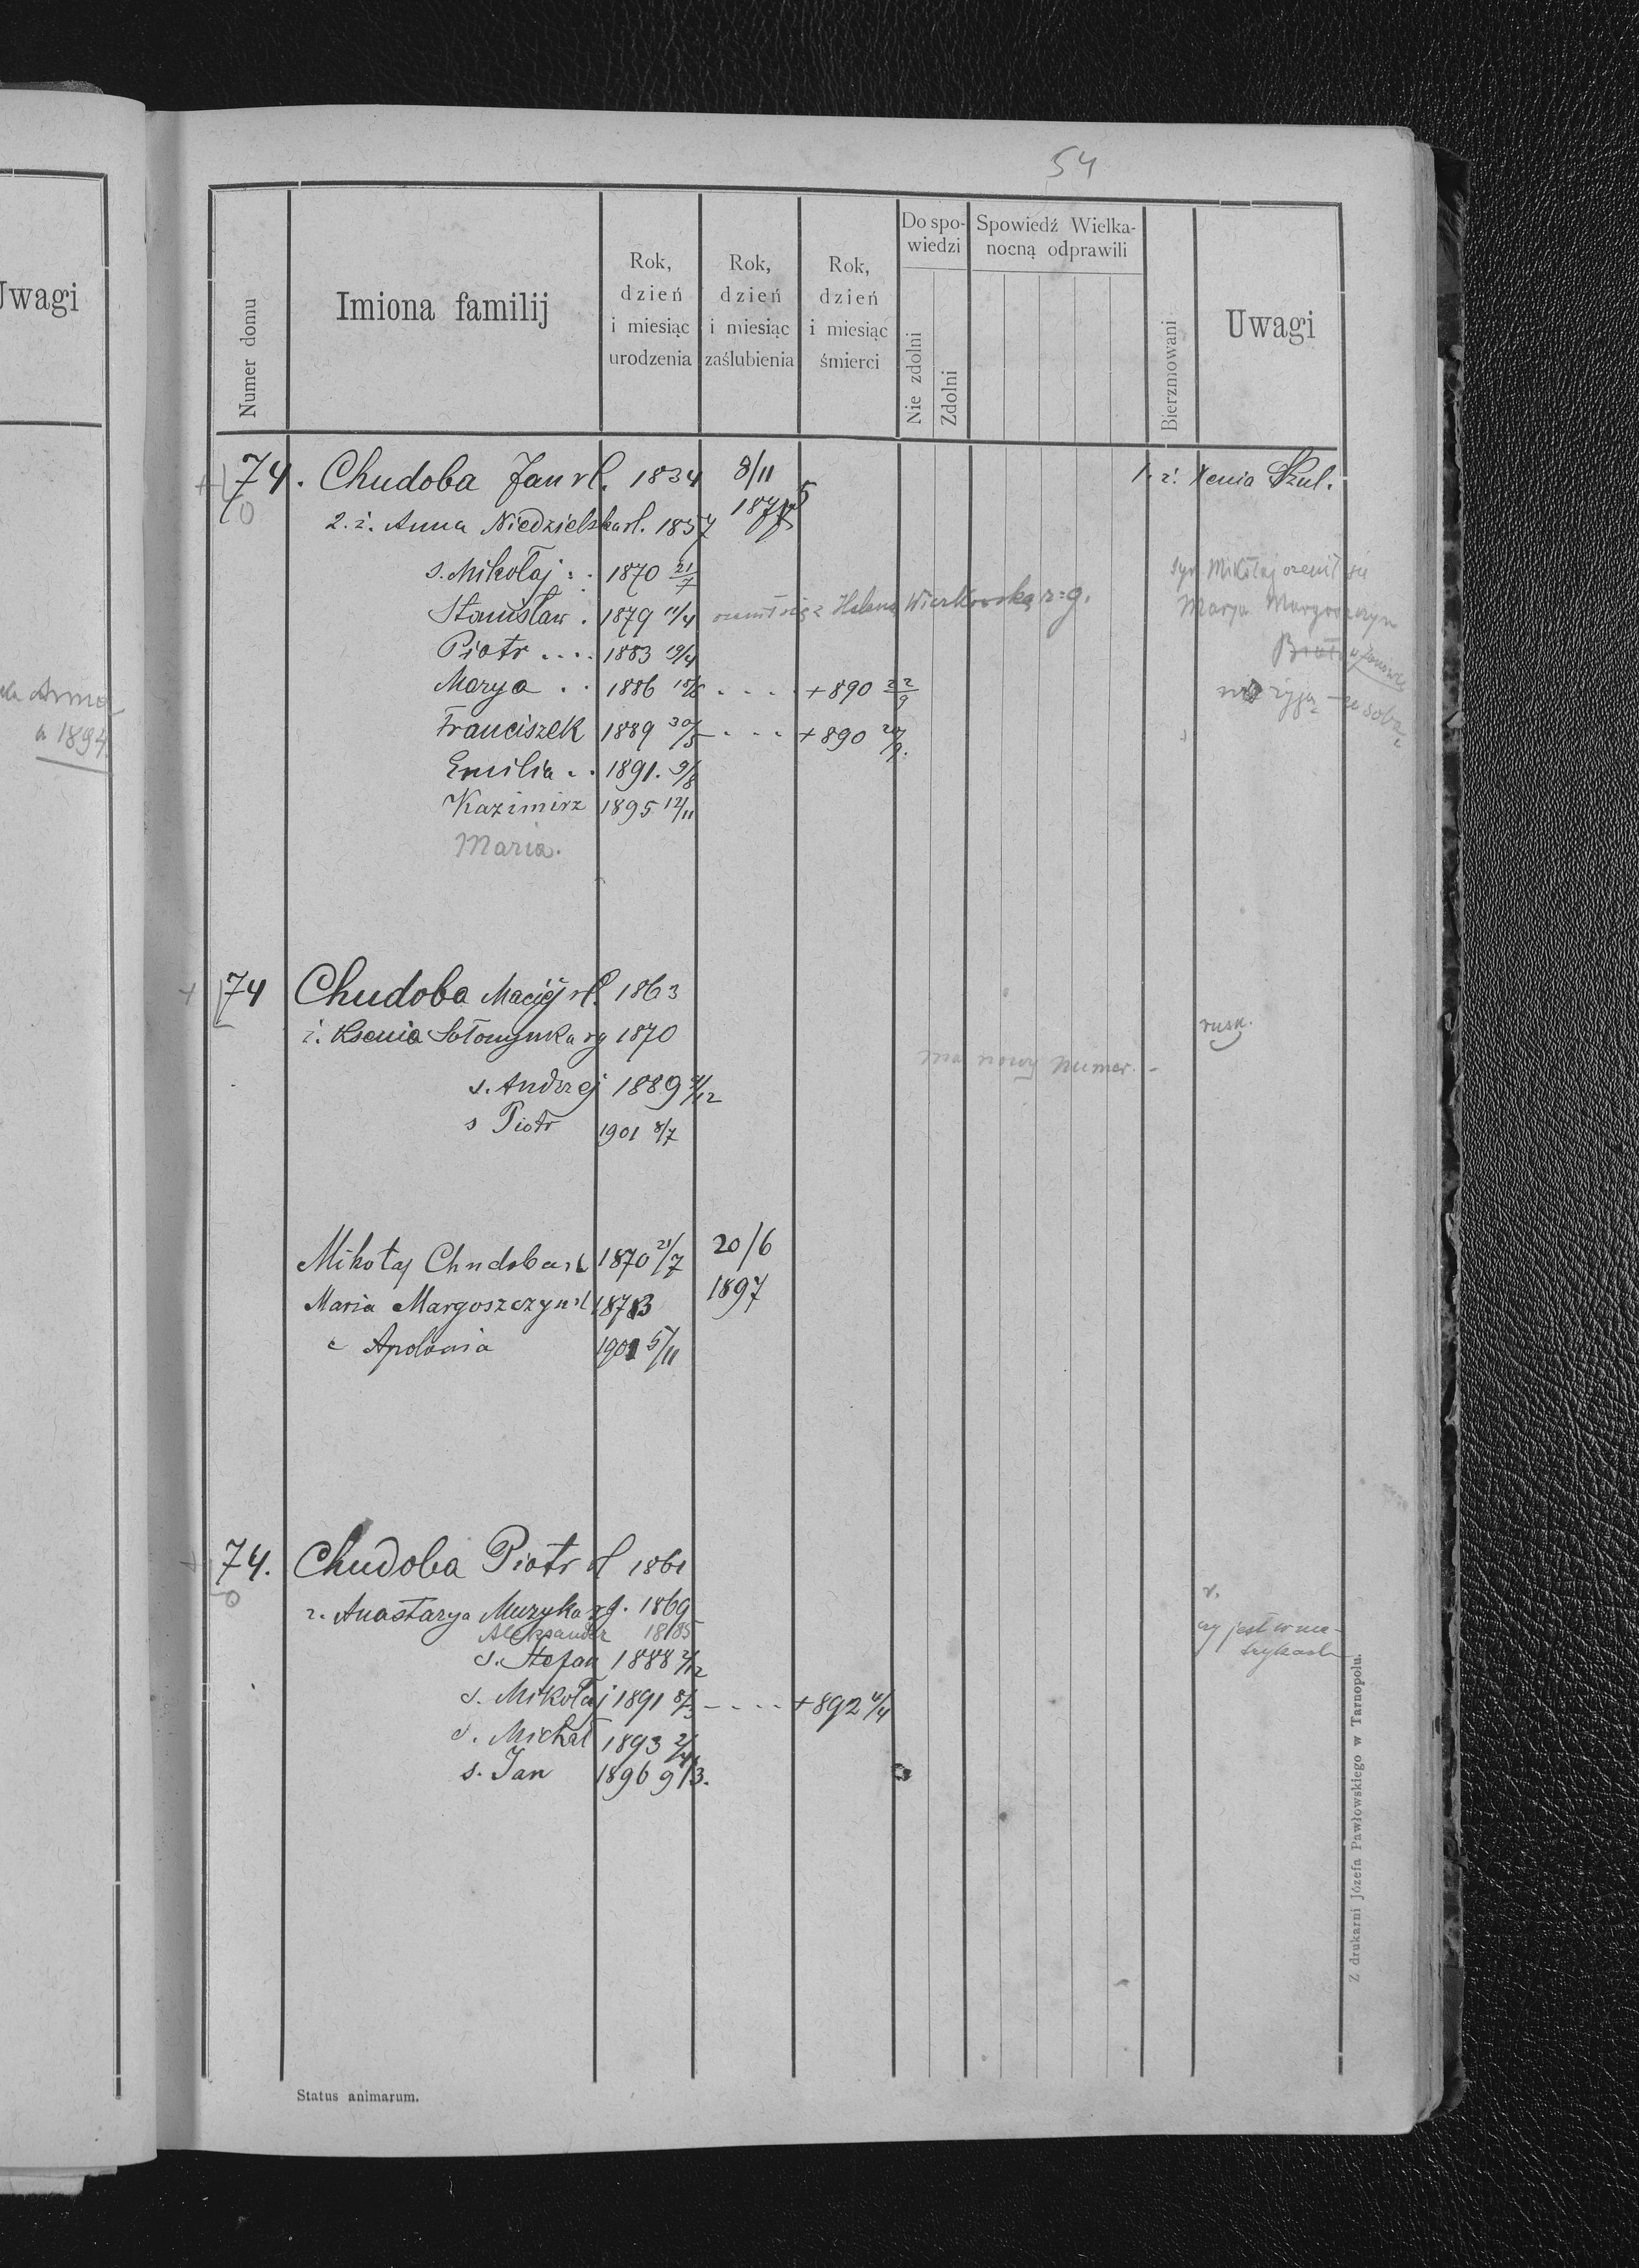 54
Uwagi
Numer domu
Imiona familij
Rok,
dzień
i miesiąc
urodzenia
Rok,
dzień
i miesiąc
zaślubienia
Rok,
dzień
i miesiąc
śmierci
Do spo-
wiedzi
Nie zdolni
Zdolni
Spowiedź Wielka-
nocną odprawili
Bierzmowani
Uwagi
74. Chudoba Jan rl. 1834 8/11 1. ż. Xenia Szul.
2. ż. Anna Niedzielska rl. 1857 1875
s. Mikołaj . . 1870 21/7 syn Mikołaj ożenił się
Stanisław . 1879 11/4 ożenił się z Heleną Wierzkowską r: g. Marya Margoszczyn
Piotr .... 1883 19/4
Marya . . 1886 15/8 .... +890 22/9 żyją
Franciszek 1889 30/5 .... +890 20/9.
Emilia . . 1891. 9/8
Kazimirz 1895 12/11
Maria.
Anna
1894
74 Chudoba Maciéj rł. 1863
ż. Ksenia Sołomynka rg 1870 rusk.
ma nowy numer. -
s. Andrzej 1889 /12
s Piotr 1901 8/7
Mikołaj Chudoba rl 1870 21/7 20/6
Maria Margoszczyn rl 1873 1897
c Apolonia 1901 5/11
74. Chudoba Piotr rl 1861
ż. Anastazya Muzyka rg. 1869 r.
Aleksander 1885 czy jest w me-
s. Stefan 1888 2/12 trykach
s. Mikołaj 1891 8/3 .... +892 4/4
s. Michał 1893
s. Jan 1896 9/3.
Z drukarni Józefa Pawłowskiego w Tarnopolu.
Status animarum.